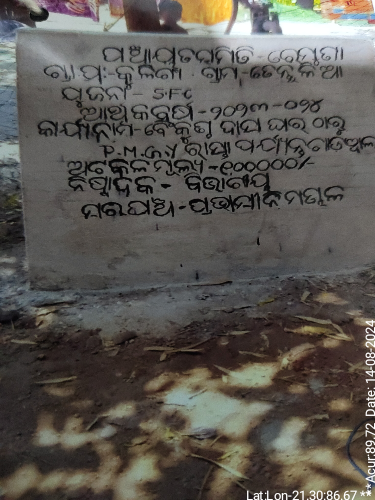 ପଞ୍ଚାୟତସମିତି - ବେମୁଗା
ଗ୍ରା.ପଂ:- କୁଲିଗାଁ . ଗ୍ରାମ - ତେନ୍ତୁଳିଆ
ଯୋଜନା - SFC
ଆର୍ଥିକବର୍ଷ - ୨୦୨୩ - ୦୨୪
କାର୍ଯ୍ୟନାମ - ବୈକୁଣ୍ଠ ଦାସ ଘର ଠାରୁ
P.M.G.Y ରାସ୍ତା ପର୍ଯ୍ୟନ୍ତ
ଅଟକଳ ମୂଲ୍ୟ - ୧୦୦୦୦୦/-
ନିଷ୍ପାଦକ - ବିଭାଗୀୟ
ସରପଞ୍ଚ - ପ୍ରଭାସୀନି ମଣ୍ଡଳ
Lat:Lon-21.30:86.67 **
**Acur:89.72, Date: 14-08-2024